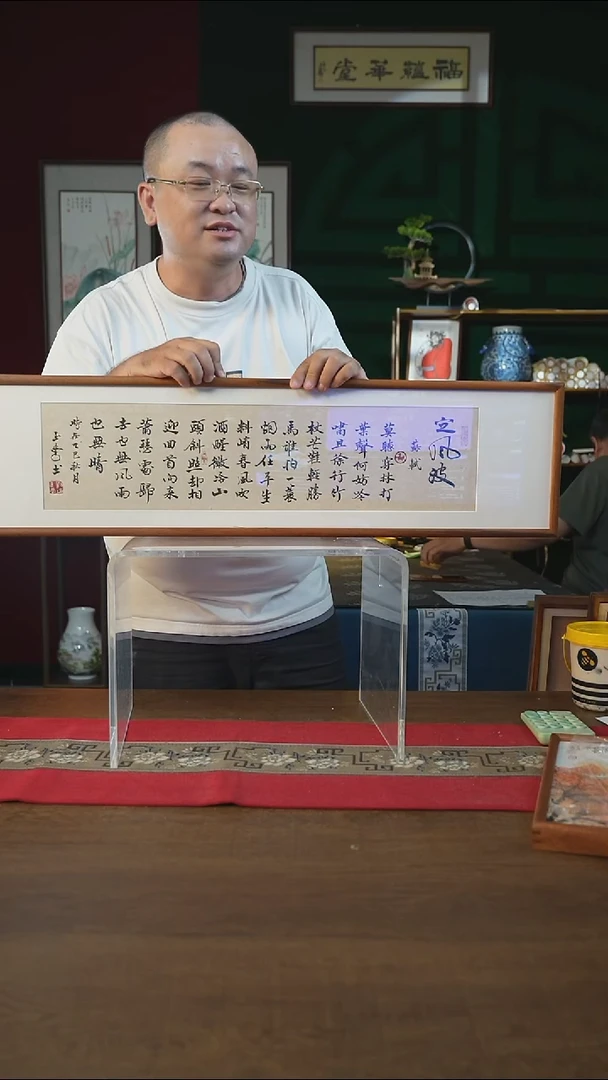 福蘊華堂
定風波
蘇軾
莫聽穿林打
葉聲何妨吟
嘯且徐行竹
杖芒鞋輕勝
馬誰怕一蓑
烟雨任平生
料峭春風吹
酒醒微冷山
頭斜照却相
迎回首向來
蕭瑟處歸
去也無風雨
也無晴
時在乙巳秋月